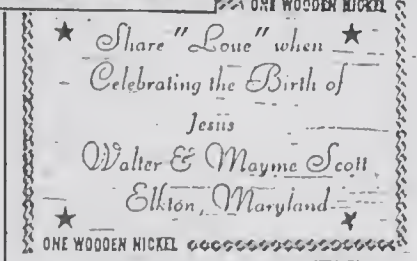 ONE WOODEN NICKEL
Share "Love" when
Celebrating the Birth of
Jesus
Walter & Mayme Scott
Elkton, Maryland
ONE WOODEN NICKEL